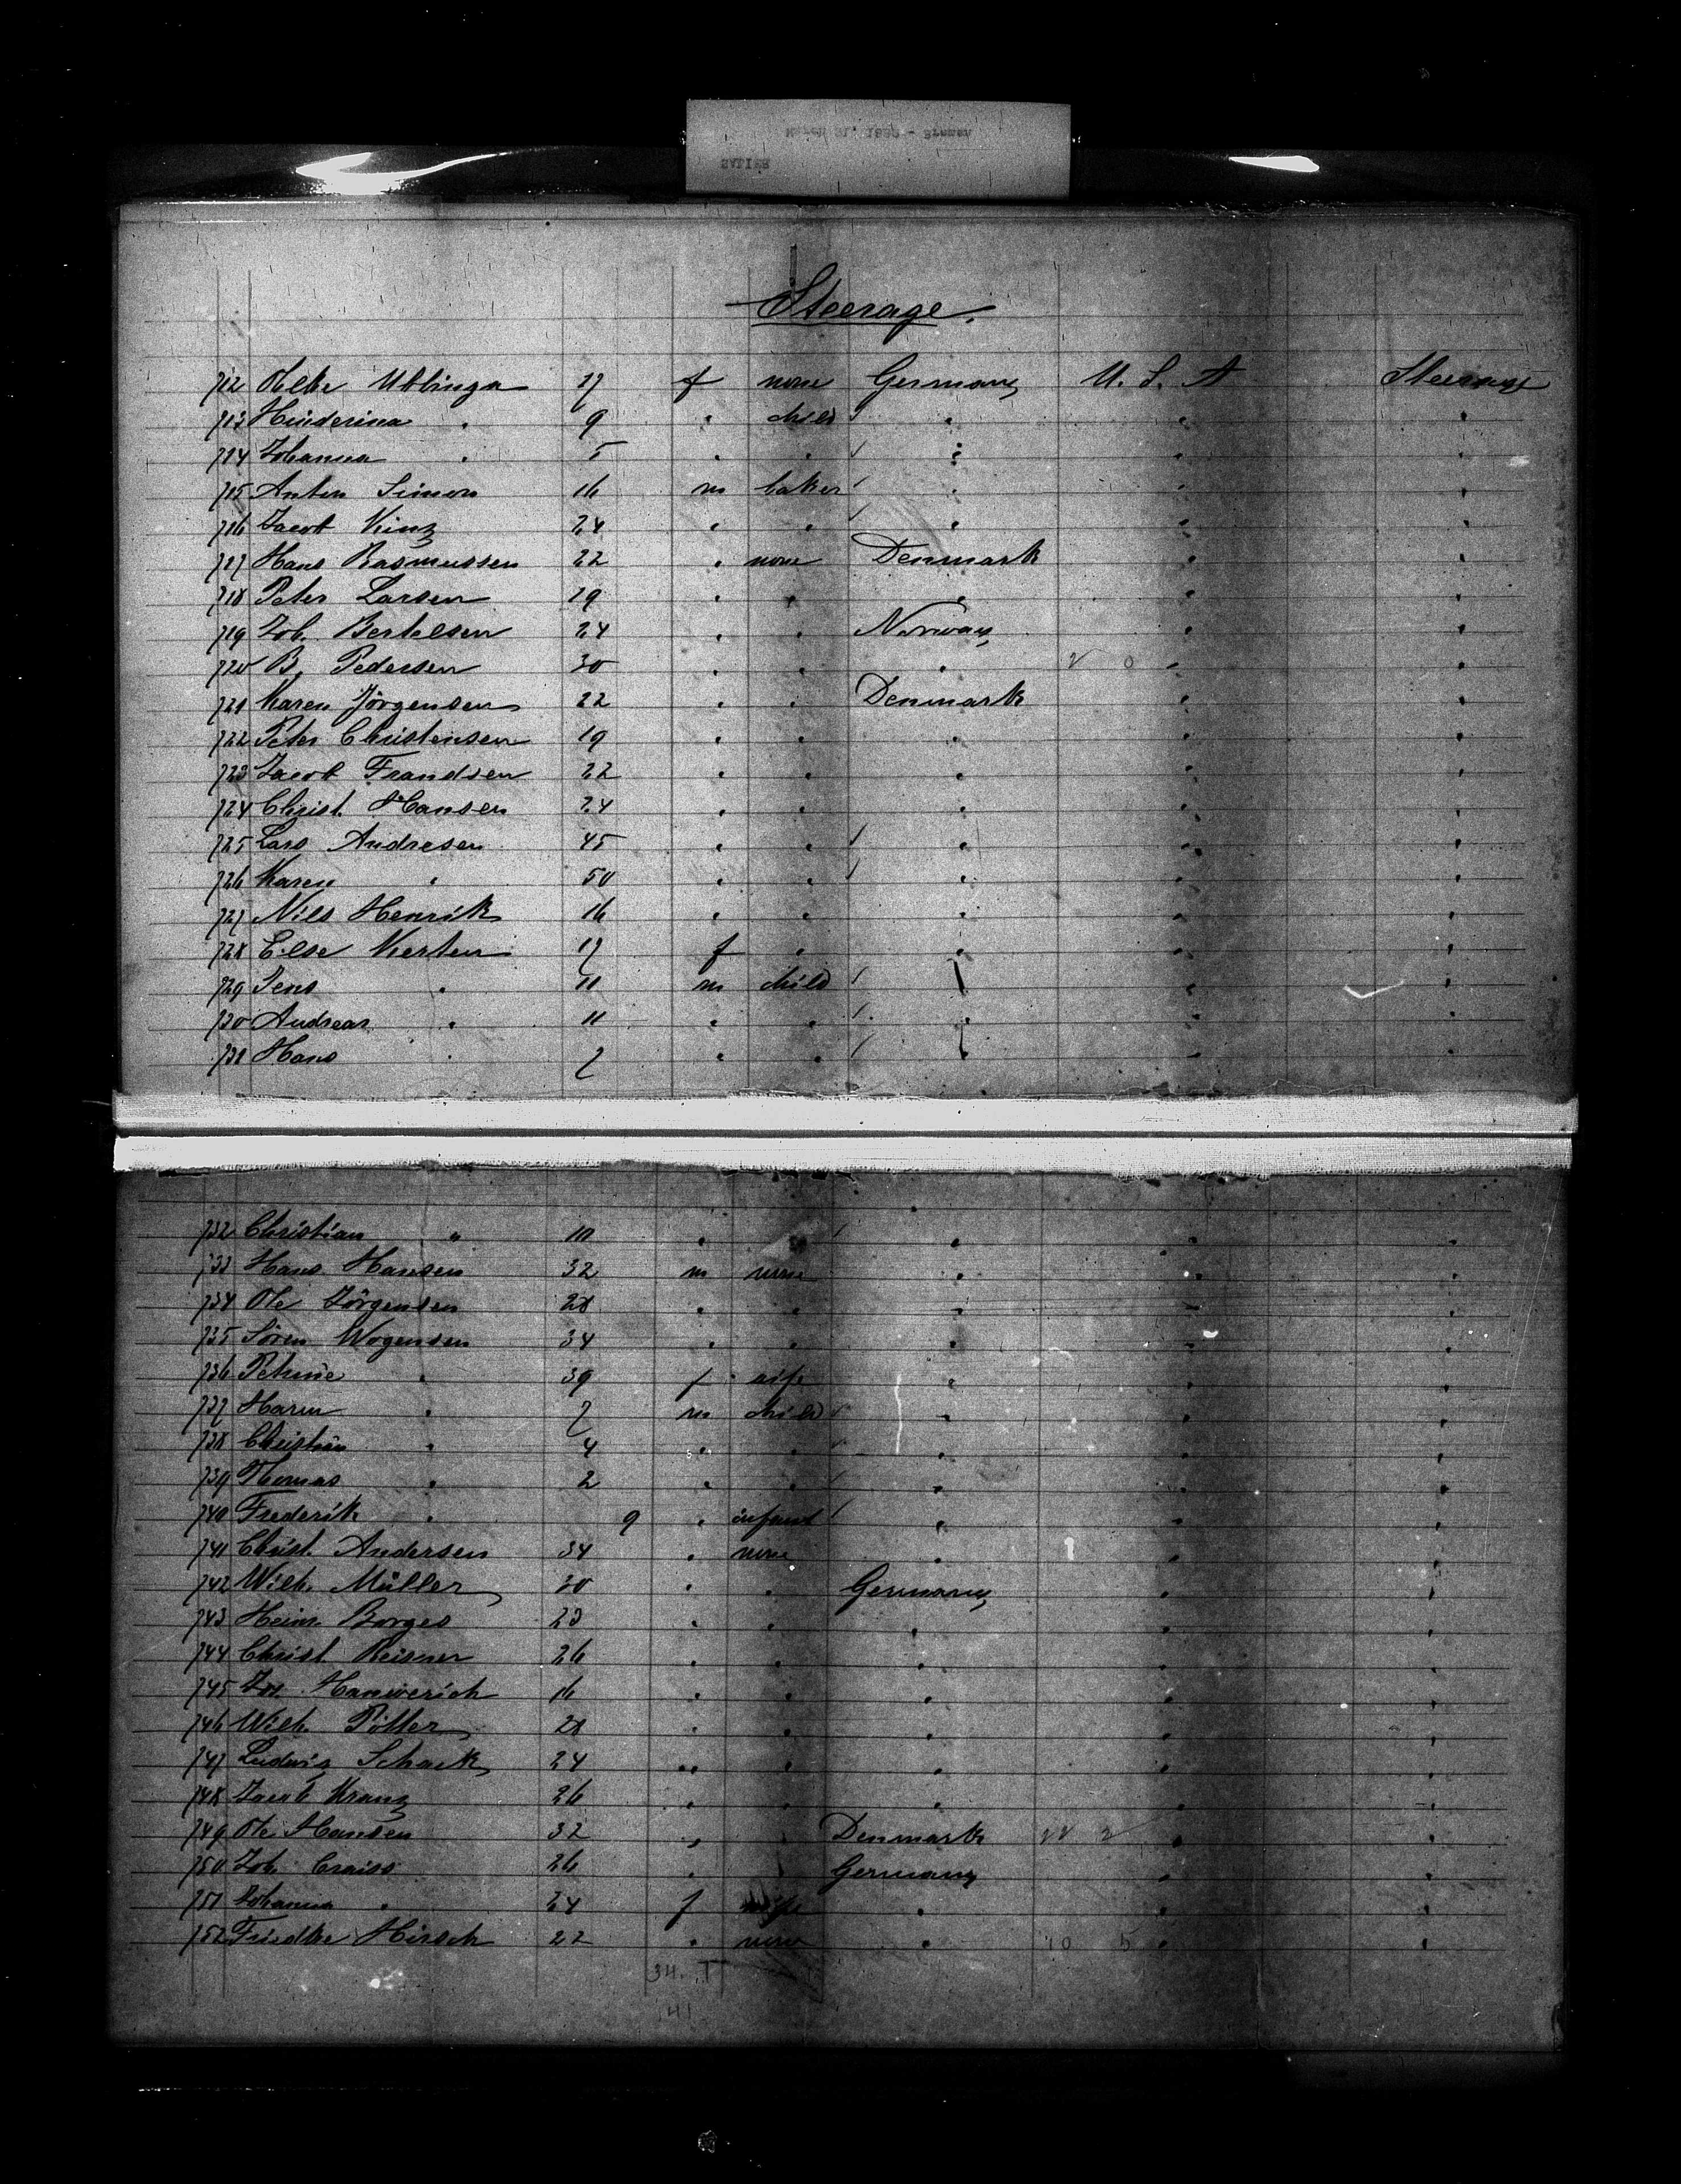 March 21, 1889 - Bremen
SALIER
Steerage.
712 Ubbinga 17 f none Germany U. S. A Steerage
713 Hinderina " 9 " child "
714 Johanna " 5 " " "
715 Anton Simon 16 m baker "
716 Jacob Kinz 24 " " "
717 Hans Rasmussen 22 " none Denmark "
718 Peter Larsen 19 " " "
719 Joh. Bertelsen 24 " " Norway "
720 B. Pedersen 30 " " " "
721 Karen Jörgensen 22 " " Denmark "
722 Peter Christensen 19 " " " "
723 Jacob Frandsen 22 " " " "
724 Christ. Hansen 24 " " " "
725 Lars Andresen 45 " " " "
726 Karen " 50 " " " "
727 Nils Henrik 16 " " " "
728 Else Kersten 17 f " " "
729 Jens " 11 m child " "
730 Andreas " 11 " " " "
731 Hans " 7 " " " "
732 Christian " 10 " " " "
733 Hans Hansen 32 m none " "
734 Ole Jörgensen 28 " " " "
735 Sören Wogensen 34 " " " "
736 Petrine " 39 f wife " "
737 Haren " 7 m child " "
738 Christian " 4 " " " "
739 Thomas " 2 " " " "
740 Frederik " 9 " infant " "
741 Christ. Andersen 34 " none " "
742 Wilh. Müller 30 " " Germany "
743 Heinr. Borges 23 " " " "
744 Christ. Reisner 26 " " " "
745 Jos. Hanwerich 16 " " " "
746 Wilh. Pötter 28 " " " "
747 Ludwig Schack 24 " " " "
748 Jacob Kranz 26 " " " "
749 Ole Hansen 32 " " Denmark "
750 Joh. Craiss 26 " " Germany "
751 Johanna " 24 f wife " "
752 Friedke Hirsch 22 " none " 10 5 "
34. T
141